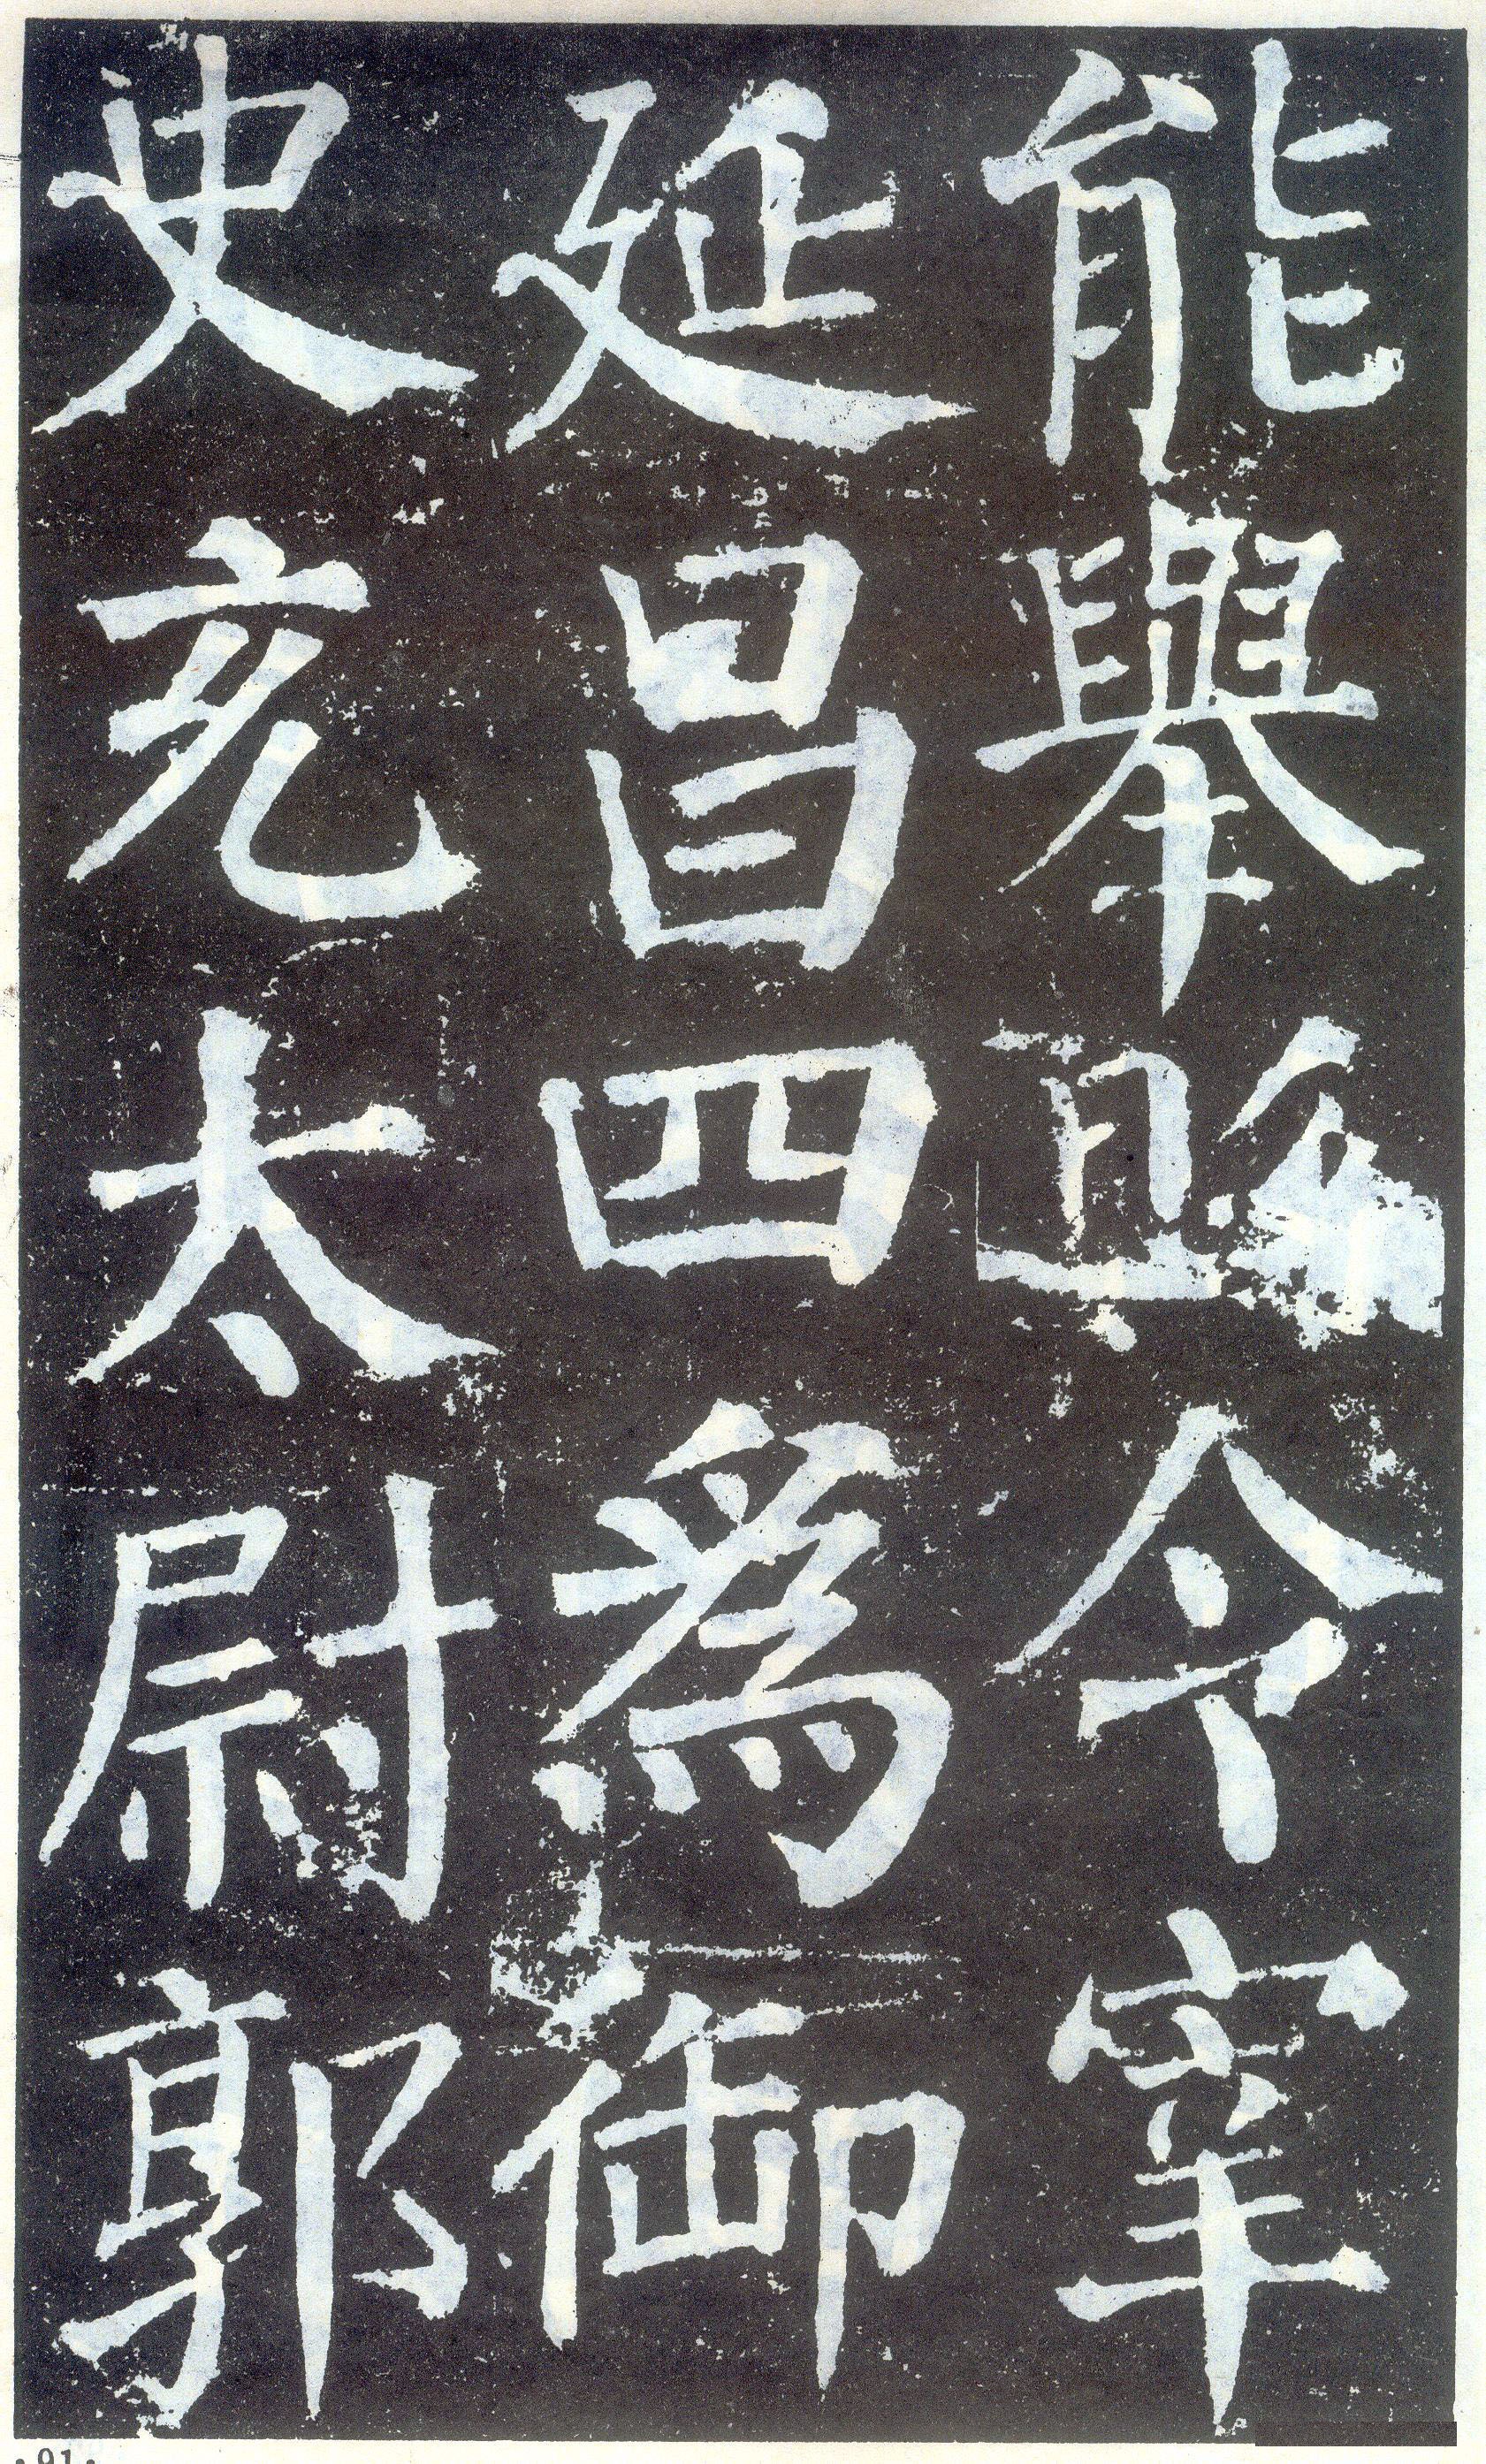 能舉縣令宰
延昌四為御
史充太尉郭
·91·